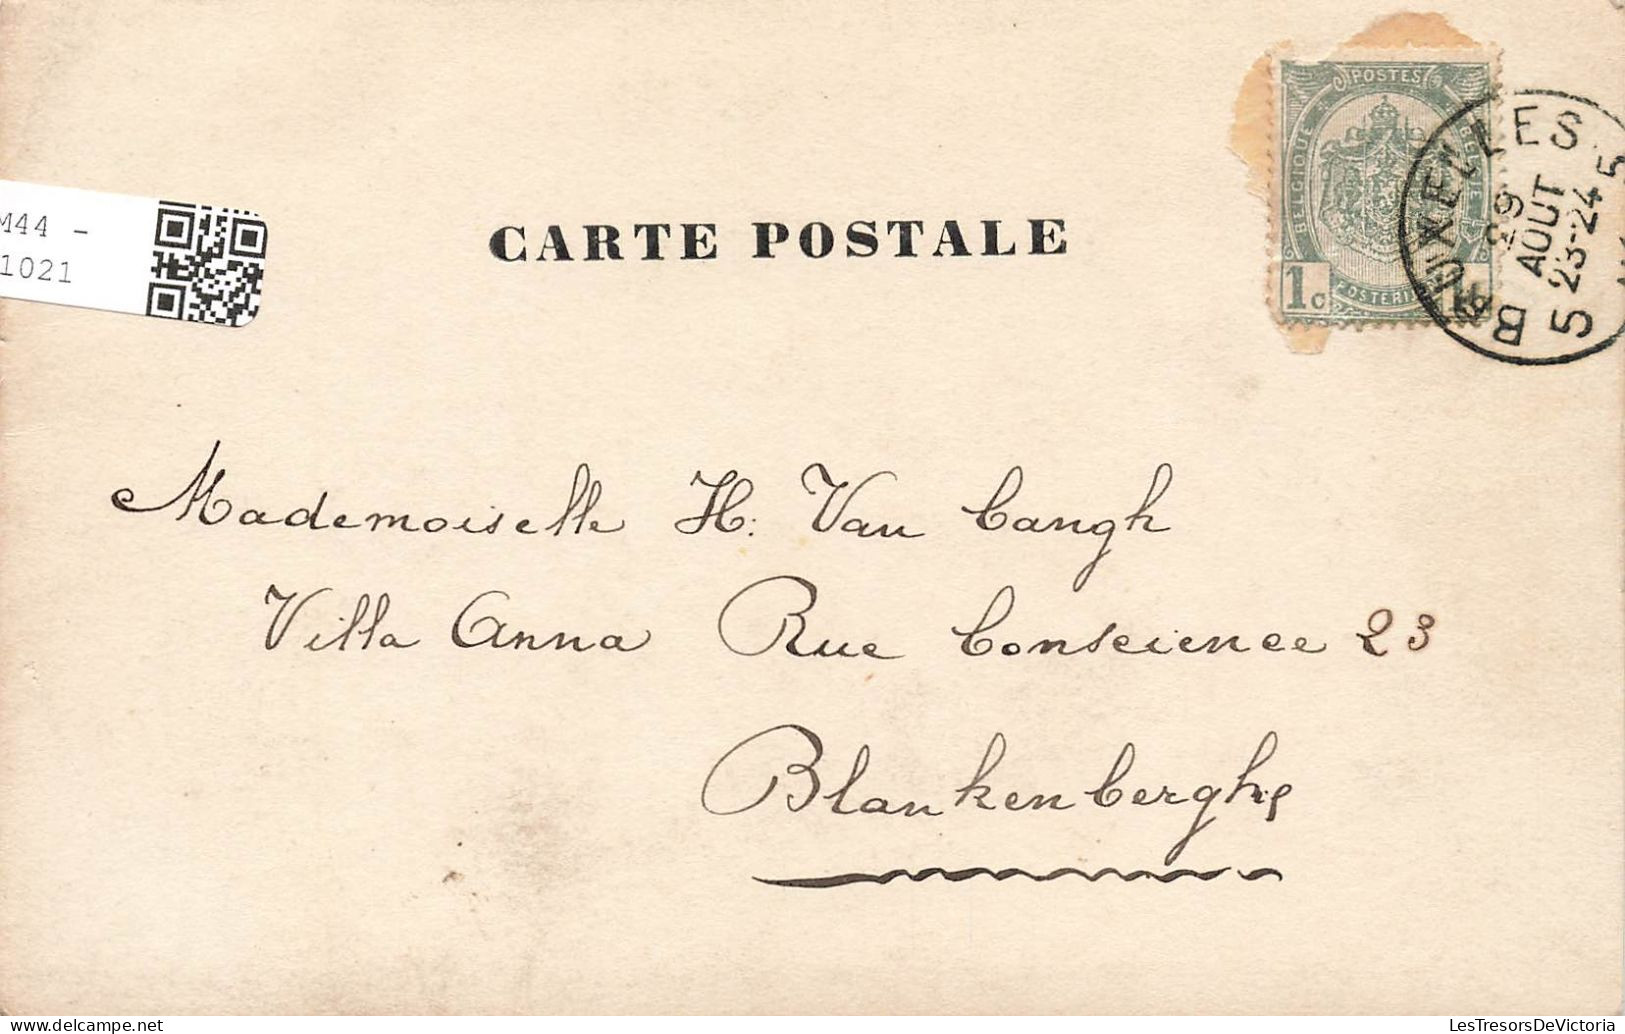 M44 -
1021
CARTE POSTALE
POSTES
BELGIQUE
BELGIE
1c
BRUXELLES 5
29
AOUT
23-24
5
Mademoiselle H. Van Cangh
Villa Anna Rue Conscience 23
Blankenberghe
LesTresorsDeVictoria